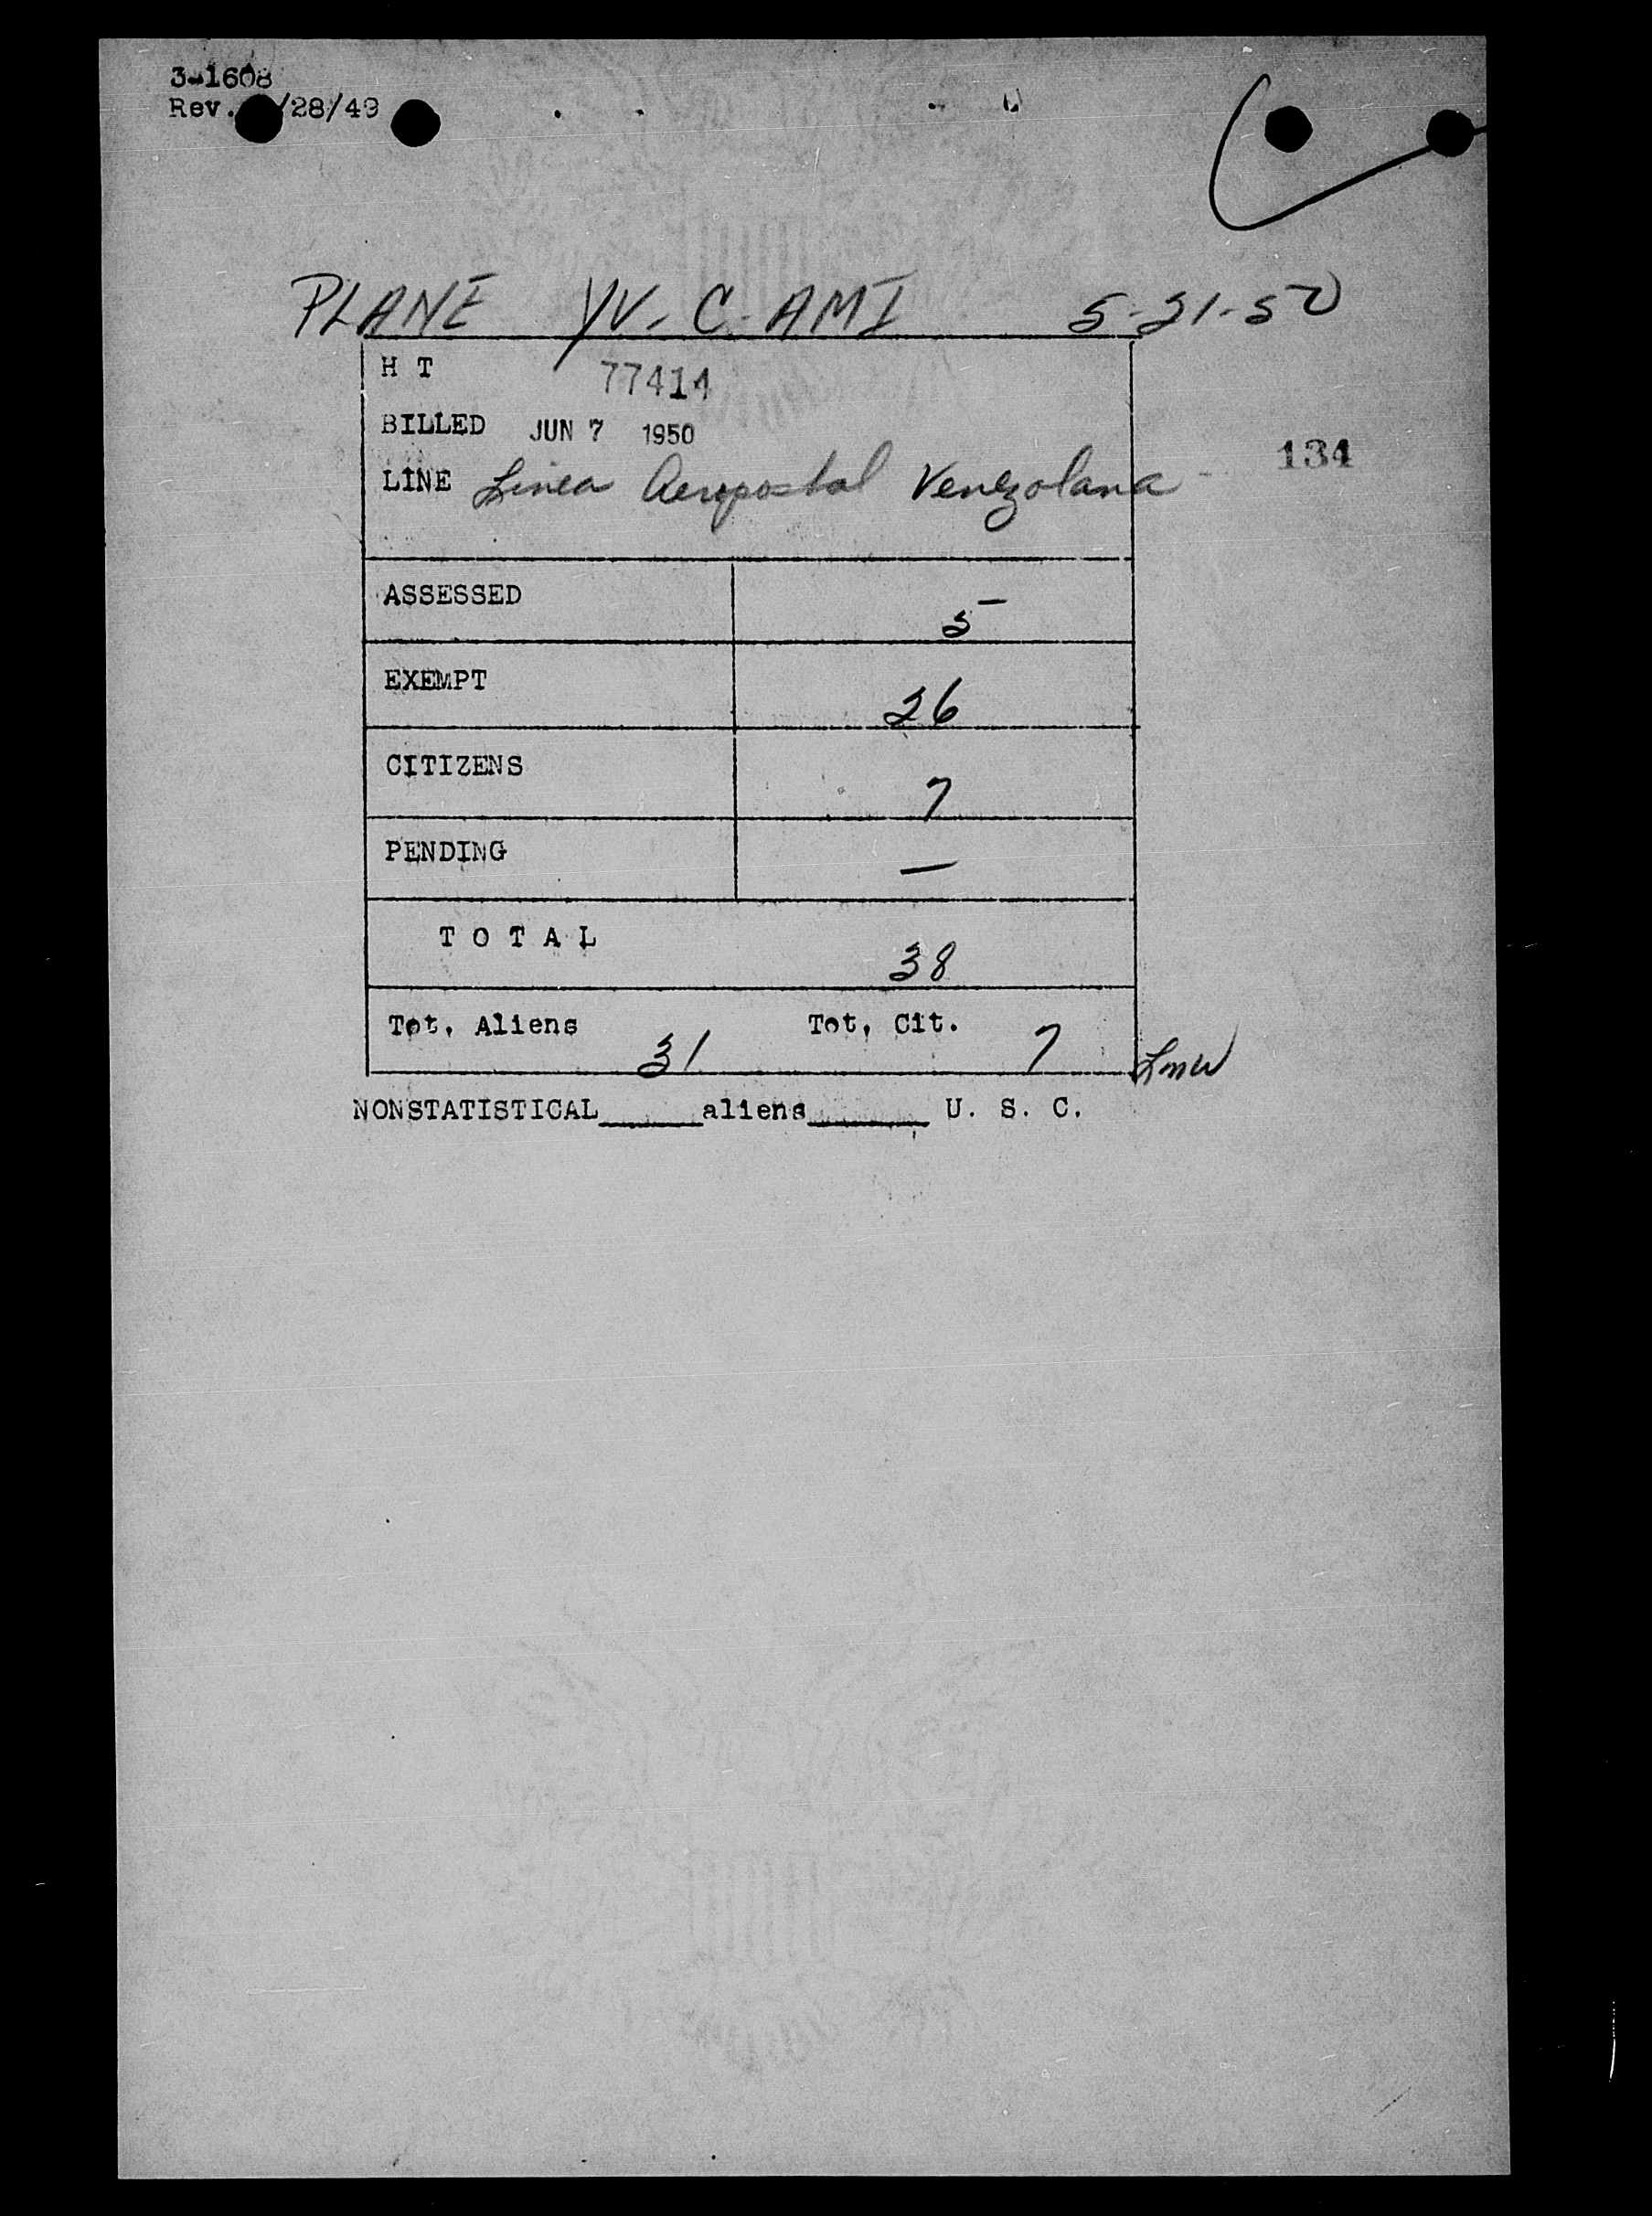 3-1608
Rev. /28/49
PLANE YV-C-AMI 5-21-50
H T 77414
BILLED JUN 7 1950
134
LINE Linea Aeropostal Venezolana
ASSESSED 5
EXEMPT 26
CITIZENS 7
PENDING —
TOTAL 38
Tot. Aliens 31 Tot. Cit. 7 Lmw
NONSTATISTICAL______aliens_______ U. S. C.